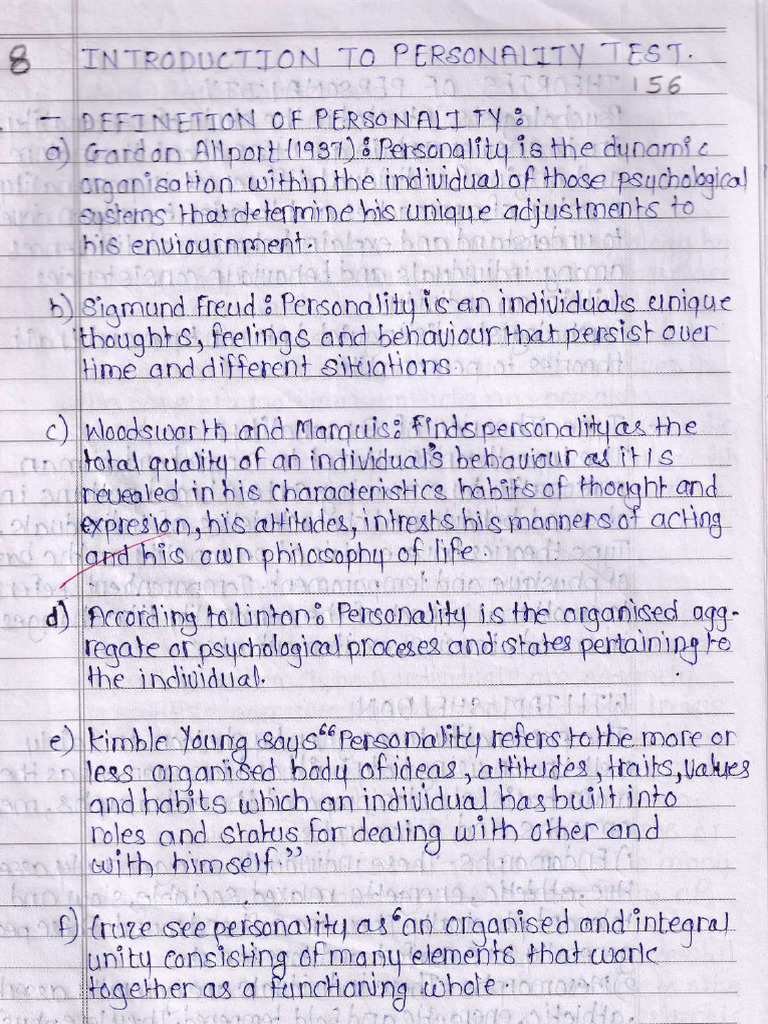 8 INTRODUCTION TO PERSONALITY TEST.
156
- DEFINETION OF PERSONALITY :
a) Gordon Allport (1937) : Personality is the dynamic
organisation within the individual of those psychological
systems that determine his unique adjustments to
his enviournment.
b) Sigmund Freud : Personality is an individuals unique
thoughts, feelings and behaviour that persist over
time and different situations.
c) Woodsworth and Marquis : finds personality as the
total quality of an individual's behaviour as it is
revealed in his characteristics habits of thought and
expresion, his attitudes, intrests his manners of acting
and his own philosophy of life.
d) According to Linton : Personality is the organised agg-
regate or psychological proceses and states pertaining to
the individual.
e) Kimble Young says "Personality refers to the more or
less organised body of ideas, attitudes, traits, values
and habits which an individual has built into
roles and status for dealing with other and
with himself."
f) Cruze see personality as "an organised and integral
unity consisting of many elements that work
together as a functioning whole.